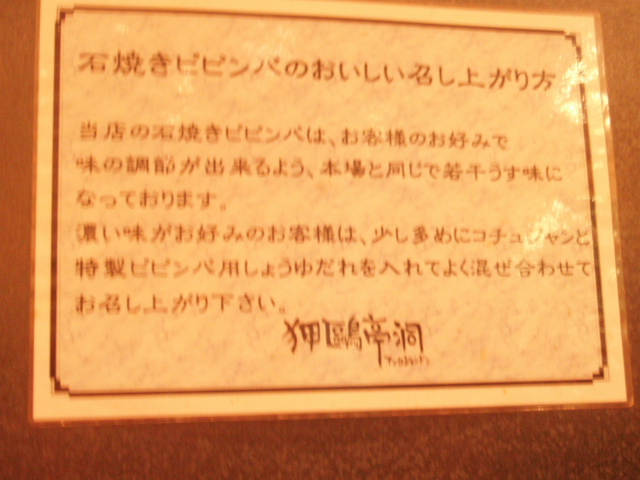 石焼きビビンバのおいしい召し上がり方
当店の石焼きビビンバは、お客様のお好みで
味の調節が出来るよう、本場と同じで若干うす味に
なっております。
濃い味がお好みのお客様は、少し多めにコチュジャンと
特製ビビンバ用しょうゆだれを入れてよく混ぜ合わせて
お召し上がり下さい。
狎鷗亭洞